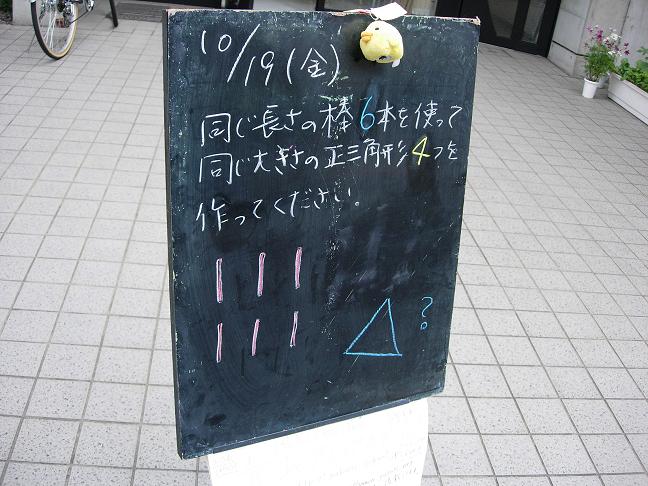 10/19(金)
同じ長さの棒6本を使って
同じ大きさの正三角形4つを
作ってください。
?